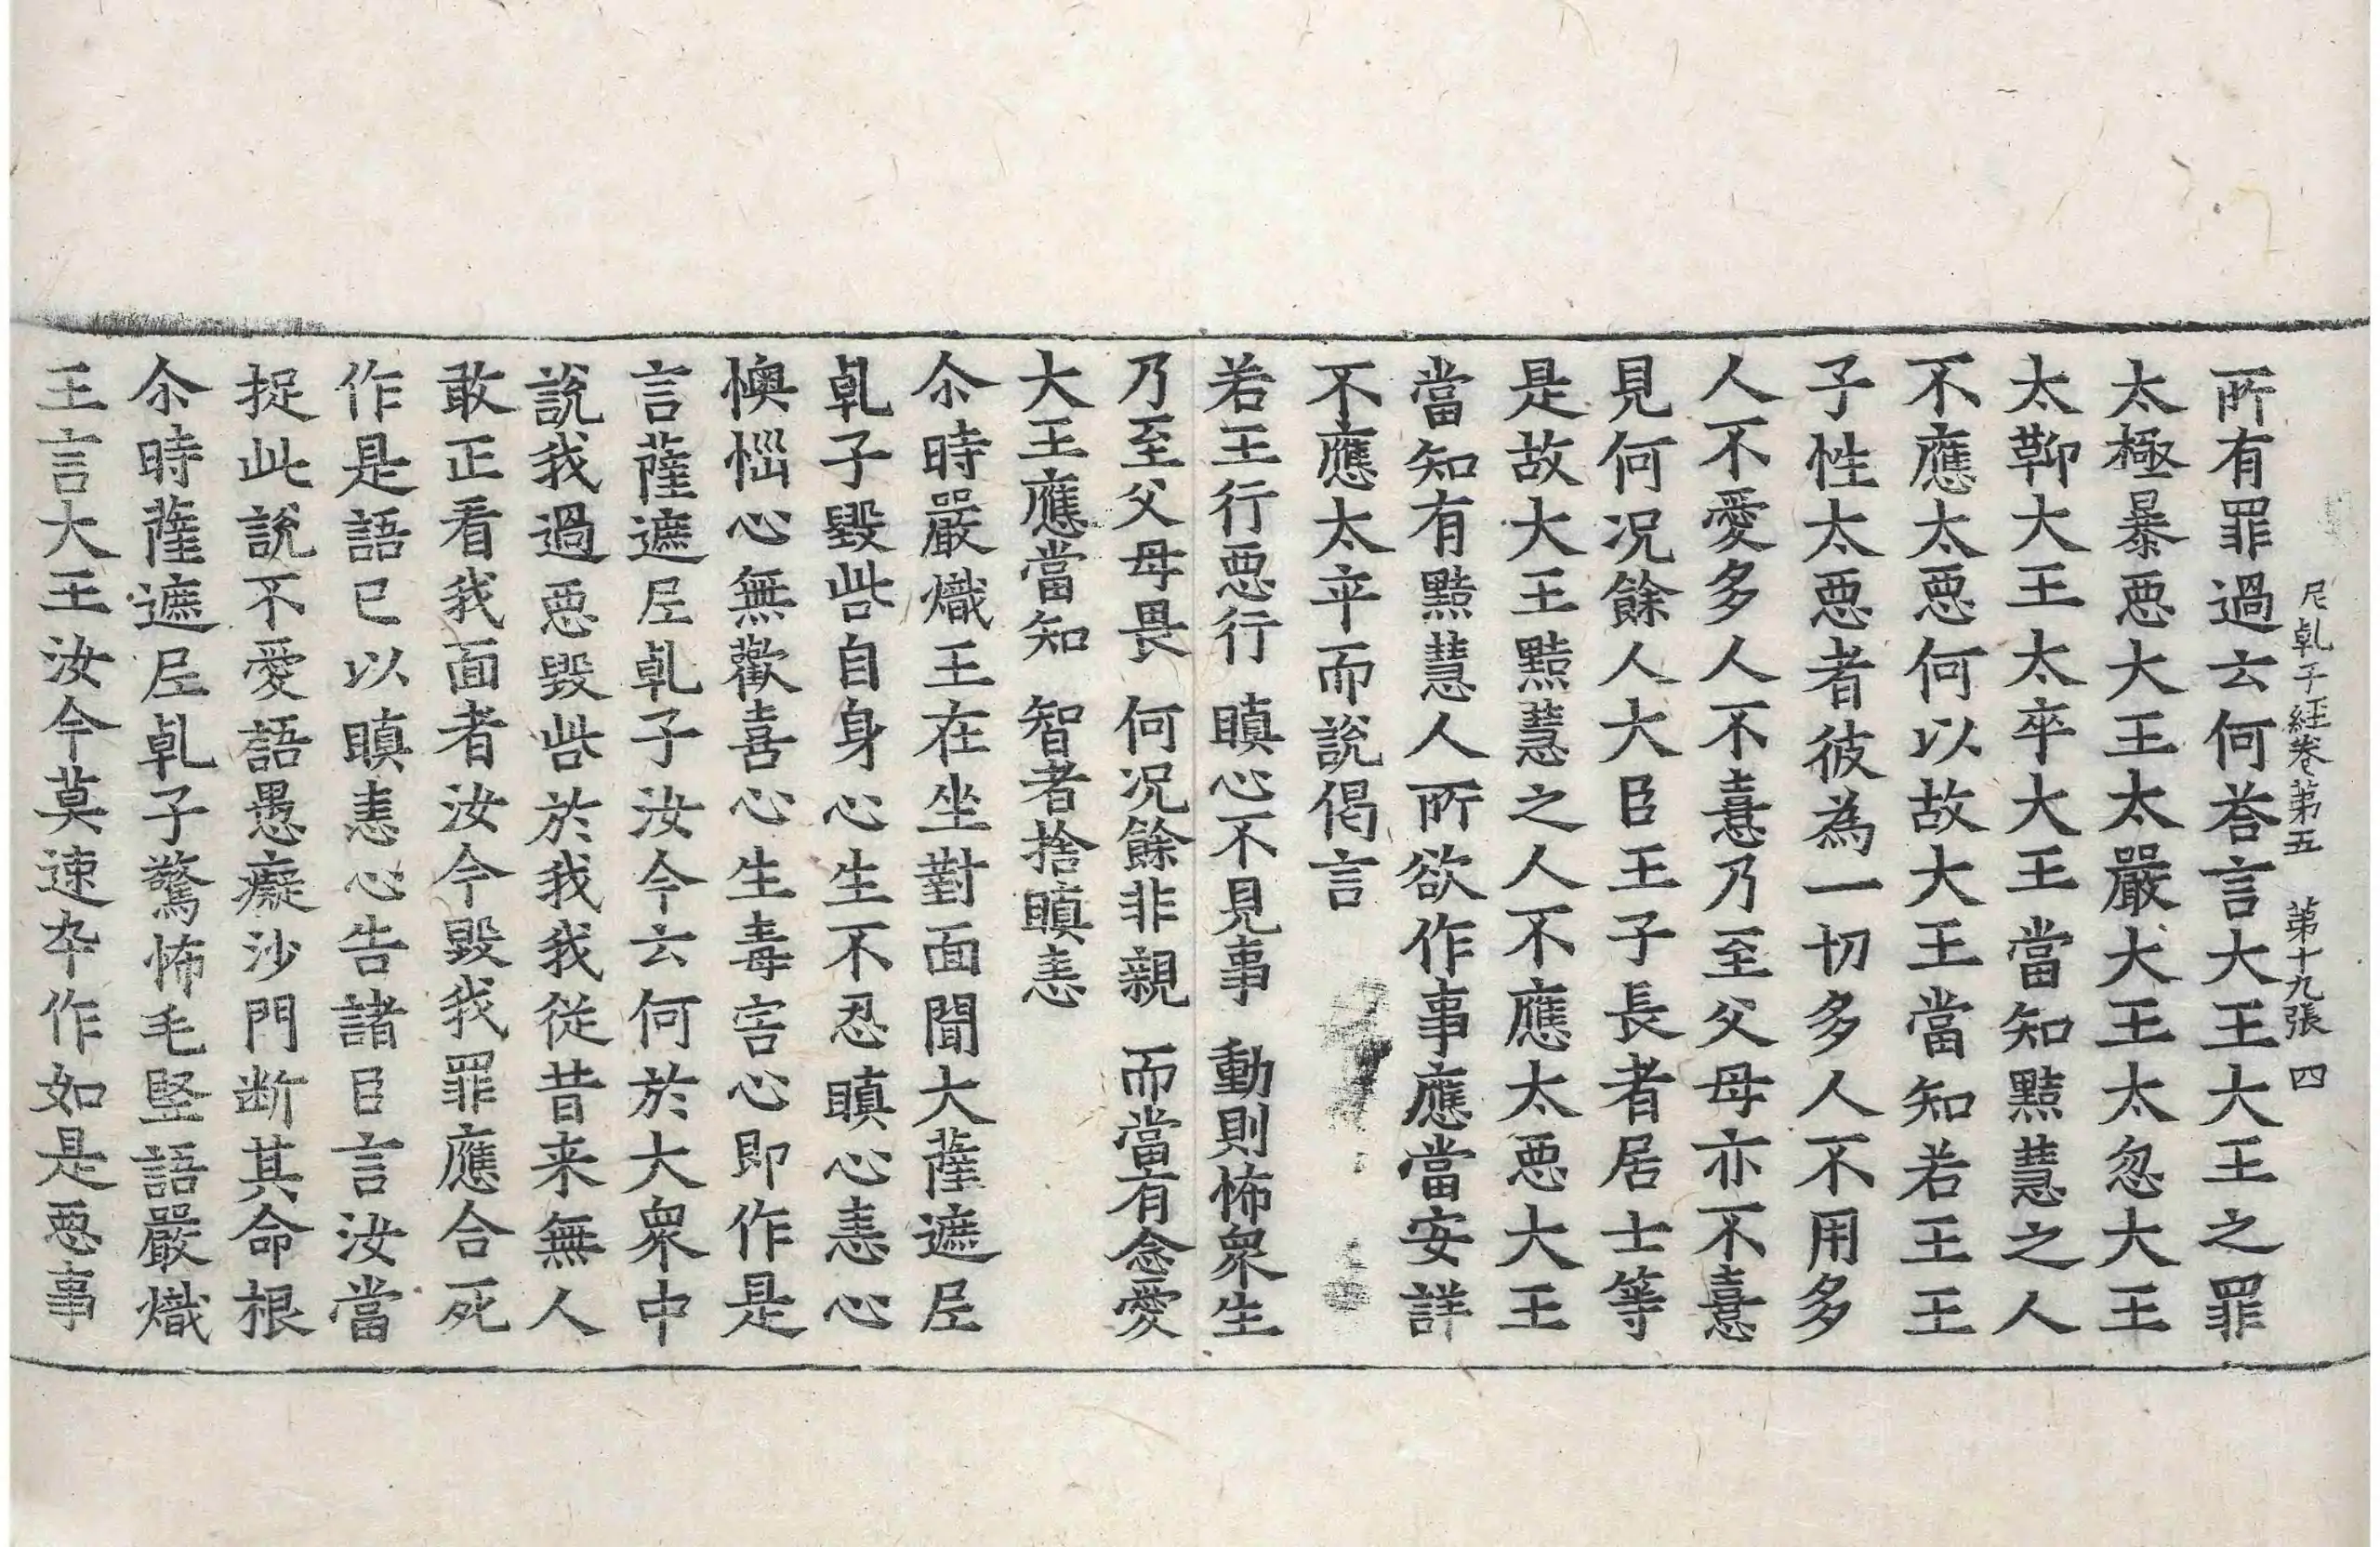 尼乹子経卷第五　第十九張　四
所有罪過云何荅言大王大王之罪
太極暴惡大王太嚴大王太忽大王
太鄆大王太卒大王當知黠慧之人
不應太惡何以故大王當知若王王
子性太惡者彼為一切多人不用多
人不愛多人不憙乃至父母亦不憙
見何况餘人大臣王子長者居士等
是故大王黠慧之人不應太惡大王
當知有黠慧人所欲作事應當安詳
不應太卒而說偈言
若王行惡行　瞋心不見事　動則怖衆生
乃至父母畏　何况餘非親　而當有念愛
大王應當知　智者捨瞋恚
尒時嚴熾王在坐對面聞大薩遮尼
乹子毀呰自身心生不忍瞋心恚心
懊惱心無歡喜心生毒害心即作是
言薩遮尼乹子汝今云何於大衆中
說我過惡毀呰於我我從昔来無人
敢正看我面者汝今毀我罪應合死
作是語已以瞋恚心告諸臣言汝當
捉此說不愛語愚癡沙門断其命根
尒時薩遮尼乹子驚怖毛竪語嚴熾
王言大王汝今莫速卒作如是惡事